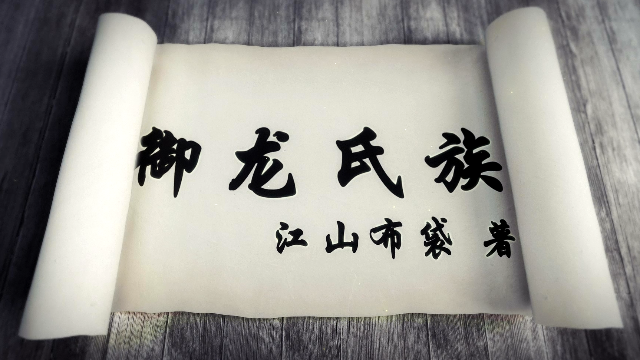 御龙氏族
江山布袋 著